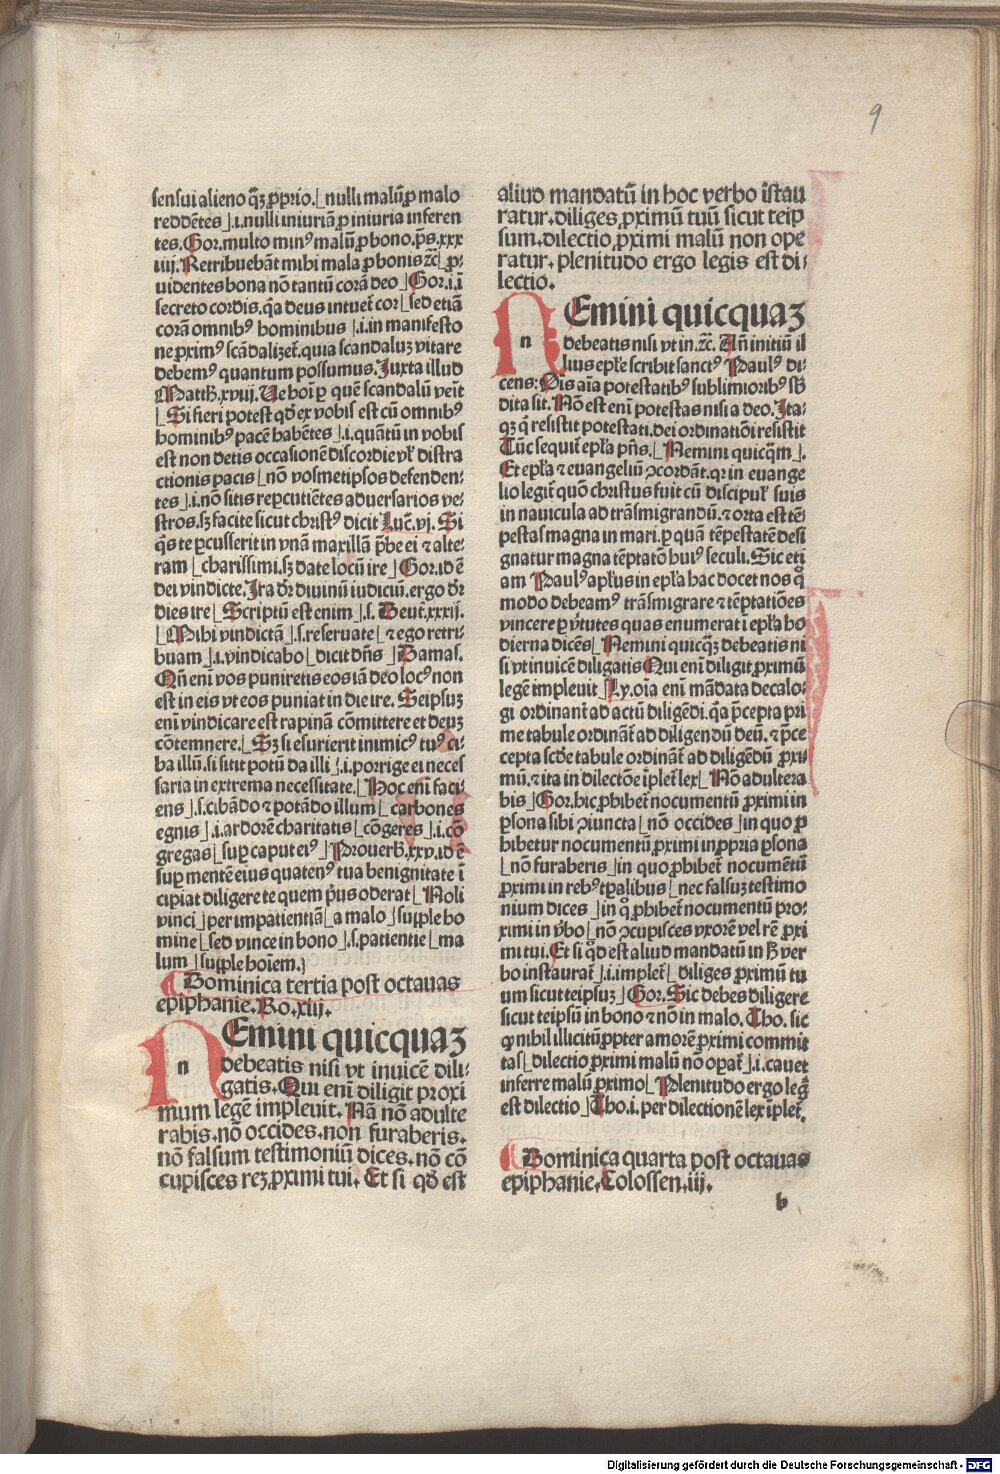 9
sensui alieno q̃ꝫ ꝓprio. ⌊nulli malū ꝓ malo
reddētes⌋ .i. nulli iniuriã ꝓ iniuria inferen
tes. Gor. multo minꝰ malū ꝓ bono. p̄s. xxx
iiij. Retribuebāt mihi mala ꝓ bonis ⁊c̄⌊ ꝓ-
uidentes bona nō tantū corā deo⌋ Gor. i. ī
secreto cordis. q̃a deus intuet̄ cor⌊ sed etiā
corā omnibꝰ hominibus⌋ .i. in manifesto
ne ꝓximꝰ scādalizet̄. quia scandaluꝫ vitare
debemꝰ quantum possumus. Juxta illud
Matth̄. xviij. Ue hoī ꝑ quē scandalū veīt
⌊Si fieri potest qđ ex vobis est cū omnibꝰ
hominibꝰ pacē habētes⌋ .i. quātū in vobis
est non detis occasionē discordie vł distra
ctionis pacis⌊ nō vosmetipsos defenden-
tes⌋ .i. nō sitis repcutiētes aduersarios ve-
stros. sꝫ facite sicut christꝰ dicit Luc̄. vj. Si
q̄s te ꝑcusserit in vnā maxillā p̄be ei ⁊ alte-
ram⌊ charissimi. sꝫ date locū ire⌋ Gor. id ē
dei vindicte. Ira dr̄ diuinū iudiciū. ergo dr̄
dies ire⌊ Scriptū est enim⌋ .s. Deut̄. xxxij.
⌊Mihi vindictā⌋ .s. reseruate⌊ ⁊ ego retri-
buam⌋ .i. vindicabo⌊ dicit dn̄s⌋ Damas.
Qn̄ enī vos puniretis eos iā deo locꝰ non
est in eis vt eos puniat in die ire. Seipsuꝫ
enī vindicare est rapinā cōmittere et deuꝫ
cōtemnere.⌊ Sꝫ si esurierit inimicꝰ tuꝰ ci-
ba illū. si sitit potū da illi⌋ .i. porrige ei neces
saria in extrema necessitate.⌊ Hoc enī faci-
ens⌋ .s. cibādo ⁊ potādo illum⌊ carbones
egnis⌋ .i. ardorē charitatis⌊ cōgeres⌋ .i. cō
gregas⌊ suꝑ caput eiꝰ⌋ Prouerb̄. xxv. id ē
suꝑ mentē eius quatenꝰ tua benignitate ī
cipiat diligere te quem p̄us oderat⌊ Noli
vinci⌋ per impatientiā⌊ a malo⌋ supple ho
mine⌊ sed vince in bono⌋ .s. patientie⌊ ma
lum⌋ supple hoīem.)
Dominica tertia post octauas
epiphanie. Ro. xiij.
NEmini quicquaꝫ
debeatis nisi vt inuicē dili-
gatis. Qui enī diligit proxi
mum legē impleuit. Nā nō adulte
rabis. nō occides. non furaberis.
nō falsum testimoniū dices. nō cō
cupisces reꝫ ꝓximi tui. Et si qđ est
aliud mandatū in hoc verbo īstau
ratur. diliges ꝓximū tuū sicut teip
sum. dilectio ꝓximi malū non ope
ratur. plenitudo ergo legis est di-
lectio.
NEmini quicquaꝫ
debeatis nisi vt in. ⁊c̄. An̄ initiū il
lius epłe scribit sanctꝰ Paulꝰ di-
cens: Ois aīa potestatibꝰ sublimioribꝰ sb̄
dita sit. Nō est enī potestas nisi a deo. Ita-
qꝫ q̄ resistit potestati. dei ordinatiōi resistit
Tūc sequit̄ epła p̄ns.⌊ Nemini quicq̃m⌋.
Et epła ⁊ euangeliū ꝯcordāt. qr in euange
lio legit̄ quō christus fuit cū discipuł suis
in nauicula ad trāsmigrandū. ⁊ orta est tē
pestas magna in mari. ꝑ quā tēpestatē desi
gnatur magna tēptatō huiꝰ seculi. Sic eti
am Paulꝰ apłus in epła hac docet nos q̄
modo debeamꝰ trāsmigrare ⁊ tēptatiōes
vincere ꝑ v̄tutes quas enumerat ī epła ho
dierna dicēs⌊ Nemini quicq̃ꝫ debeatis ni
si vt inuicē diligatis Qui enī diligit ꝓximū
legē impleuit⌋ Ly. oīa enī mādata decalo-
gi ordinant̄ ad actū diligēdi. q̃a p̄cepta pri
me tabule ordināt̄ ad diligendū deū. ⁊ p̄ce
cepta scđe tabule ordināt̄ ad diligēdū ꝓxi-
mū. ⁊ ita in dilectōe īplet̄ lex⌊ Nō adultera
bis⌋ Gor. hic ꝓhibet̄ nocumentū ꝓximi in
ꝑsona sibi ꝯiuncta⌊ nō occides⌋ in quo ꝓ
hibetur nocumentū ꝓximi in ꝓpria ꝑsona
⌊nō furaberis⌋ in quo ꝓhibet̄ nocumētū
ꝓximi in rebꝰ tꝑalibus⌊ nec falsuꝫ testimo
nium dices⌋ in q̊ ꝓhibet̄ nocumentū pro-
ximi in v̄bo⌊ nō ꝯcupisces vxorē vel rē ꝓxi
mi tui. Et si qđ est aliud mandatū in h̄ ver
bo instaurat̄⌋ .i. implet̄⌊ diliges ꝓximū tu
um sicut teipsuꝫ⌋ Gor. Sic debes diligere
sicut teipsū in bono ⁊ nō in malo. Tho. sic
ꝙ nihil illicitū ꝓpter amorē ꝓximi commit
tas⌊ dilectio ꝓximi malū nō oꝑat̄⌋ .i. cauet
inferre malū ꝓximo⌊ Plenitudo ergo leg̃
est dilectio⌋ Tho. i. per dilectionē lex īplet̄.
Dominica quarta post octauas
epiphanie. Colossen. iij.
b
Digitalisierung gefördert durch die Deutsche Forschungsgemeinschaft - DFG